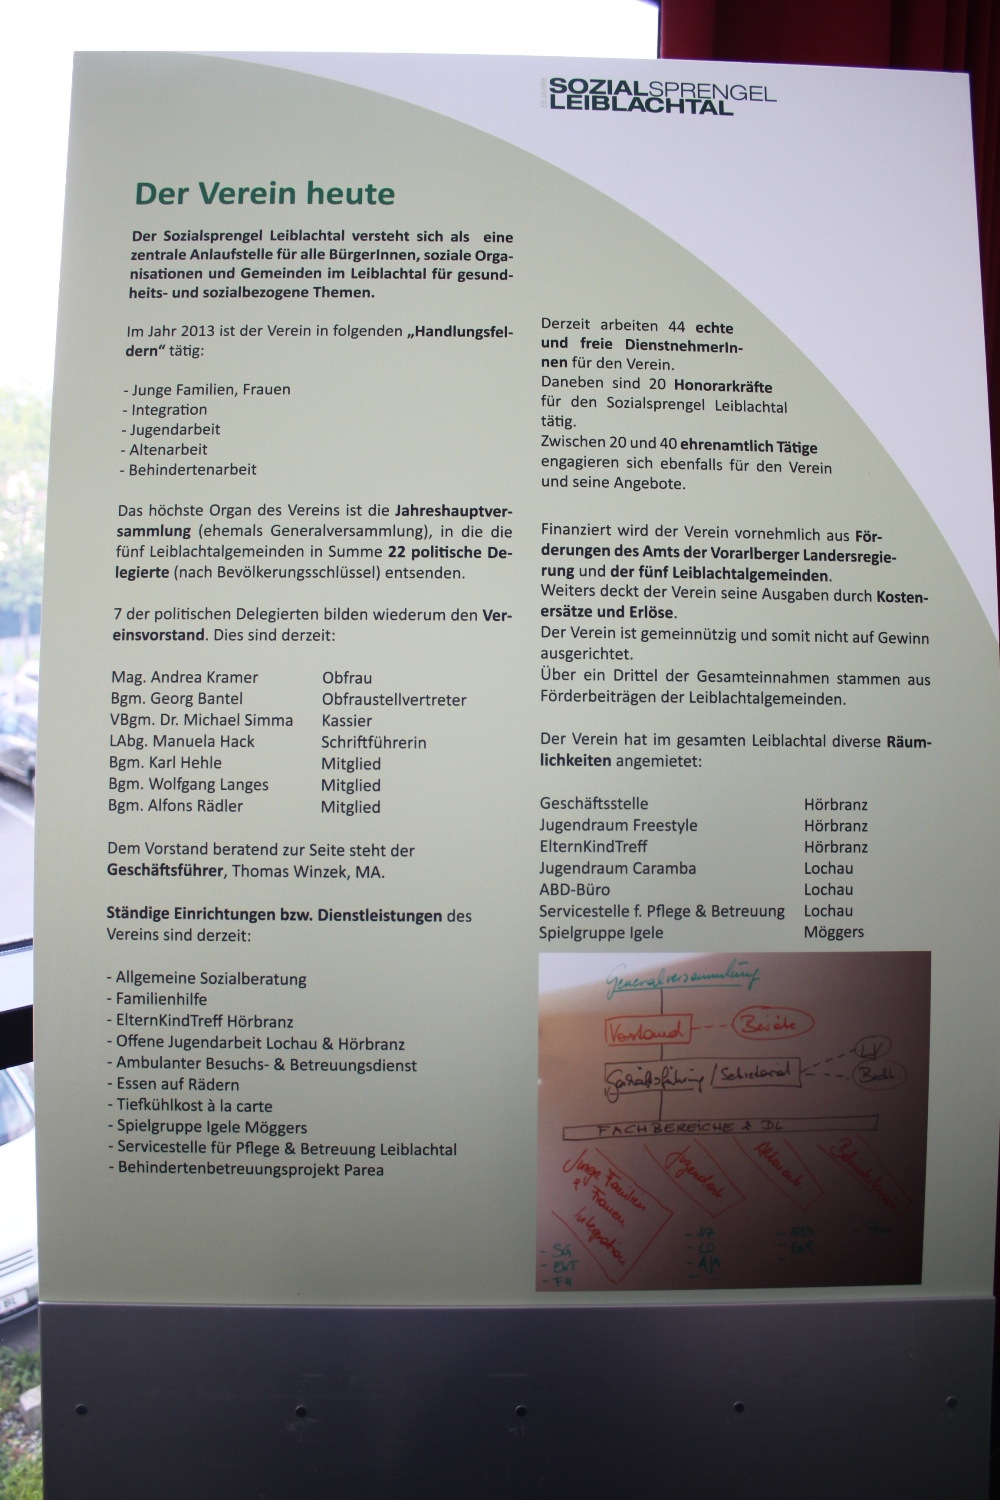 SOZIALSPRENGEL
LEIBLACHTAL
Der Verein heute
Der Sozialsprengel Leiblachtal versteht sich als eine
zentrale Anlaufstelle für alle BürgerInnen, soziale Orga-
nisationen und Gemeinden im Leiblachtal für gesund-
heits- und sozialbezogene Themen.
Im Jahr 2013 ist der Verein in folgenden „Handlungsfel-
dern“ tätig:
- Junge Familien, Frauen
- Integration
- Jugendarbeit
- Altenarbeit
- Behindertenarbeit
Das höchste Organ des Vereins ist die Jahreshauptver-
sammlung (ehemals Generalversammlung), in die die
fünf Leiblachtalgemeinden in Summe 22 politische De-
legierte (nach Bevölkerungsschlüssel) entsenden.
7 der politischen Delegierten bilden wiederum den Ver-
einsvorstand. Dies sind derzeit:
Mag. Andrea Kramer Obfrau
Bgm. Georg Bantel Obfraustellvertreter
VBgm. Dr. Michael Simma Kassier
LAbg. Manuela Hack Schriftführerin
Bgm. Karl Hehle Mitglied
Bgm. Wolfgang Langes Mitglied
Bgm. Alfons Rädler Mitglied
Dem Vorstand beratend zur Seite steht der
Geschäftsführer, Thomas Winzek, MA.
Ständige Einrichtungen bzw. Dienstleistungen des
Vereins sind derzeit:
- Allgemeine Sozialberatung
- Familienhilfe
- ElternKindTreff Hörbranz
- Offene Jugendarbeit Lochau & Hörbranz
- Ambulanter Besuchs- & Betreuungsdienst
- Essen auf Rädern
- Tiefkühlkost à la carte
- Spielgruppe Igele Möggers
- Servicestelle für Pflege & Betreuung Leiblachtal
- Behindertenbetreuungsprojekt Parea
Derzeit arbeiten 44 echte
und freie DienstnehmerIn-
nen für den Verein.
Daneben sind 20 Honorarkräfte
für den Sozialsprengel Leiblachtal
tätig.
Zwischen 20 und 40 ehrenamtlich Tätige
engagieren sich ebenfalls für den Verein
und seine Angebote.
Finanziert wird der Verein vornehmlich aus För-
derungen des Amts der Vorarlberger Landersregie-
rung und der fünf Leiblachtalgemeinden.
Weiters deckt der Verein seine Ausgaben durch Kosten-
ersätze und Erlöse.
Der Verein ist gemeinnützig und somit nicht auf Gewinn
ausgerichtet.
Über ein Drittel der Gesamteinnahmen stammen aus
Förderbeiträgen der Leiblachtalgemeinden.
Der Verein hat im gesamten Leiblachtal diverse Räum-
lichkeiten angemietet:
Geschäftsstelle Hörbranz
Jugendraum Freestyle Hörbranz
ElternKindTreff Hörbranz
Jugendraum Caramba Lochau
ABD-Büro Lochau
Servicestelle f. Pflege & Betreuung Lochau
Spielgruppe Igele Möggers
Generalversammlung
Vorstand Beiräte
Geschäftsführung / Sekretariat
LV
Buchh.
FACHBEREICHE & DL
Junge Familien
& Frauen
Integration
Jugendarb.
- SG
- EKT
- FH
- LD
- AJA